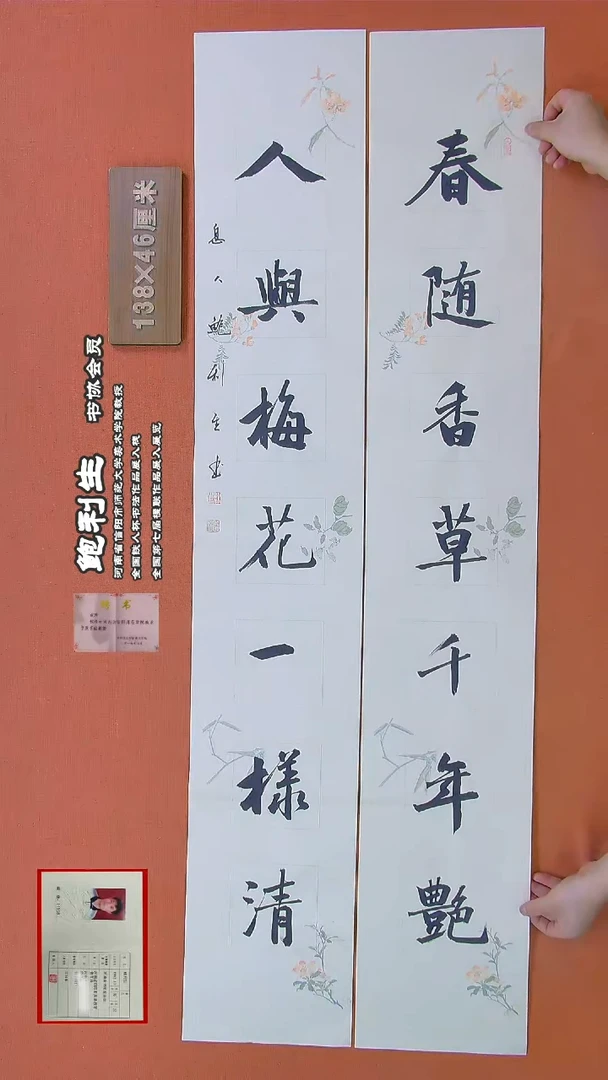 春随香草千年艷
人與梅花一樣清
息人鮑利生书
138×46厘米
鲍利生 书协会员
河南省信阳市师范大学美术学院教授
全国铁人杯书法作品展入展
全国第七届楹联作品展入展览